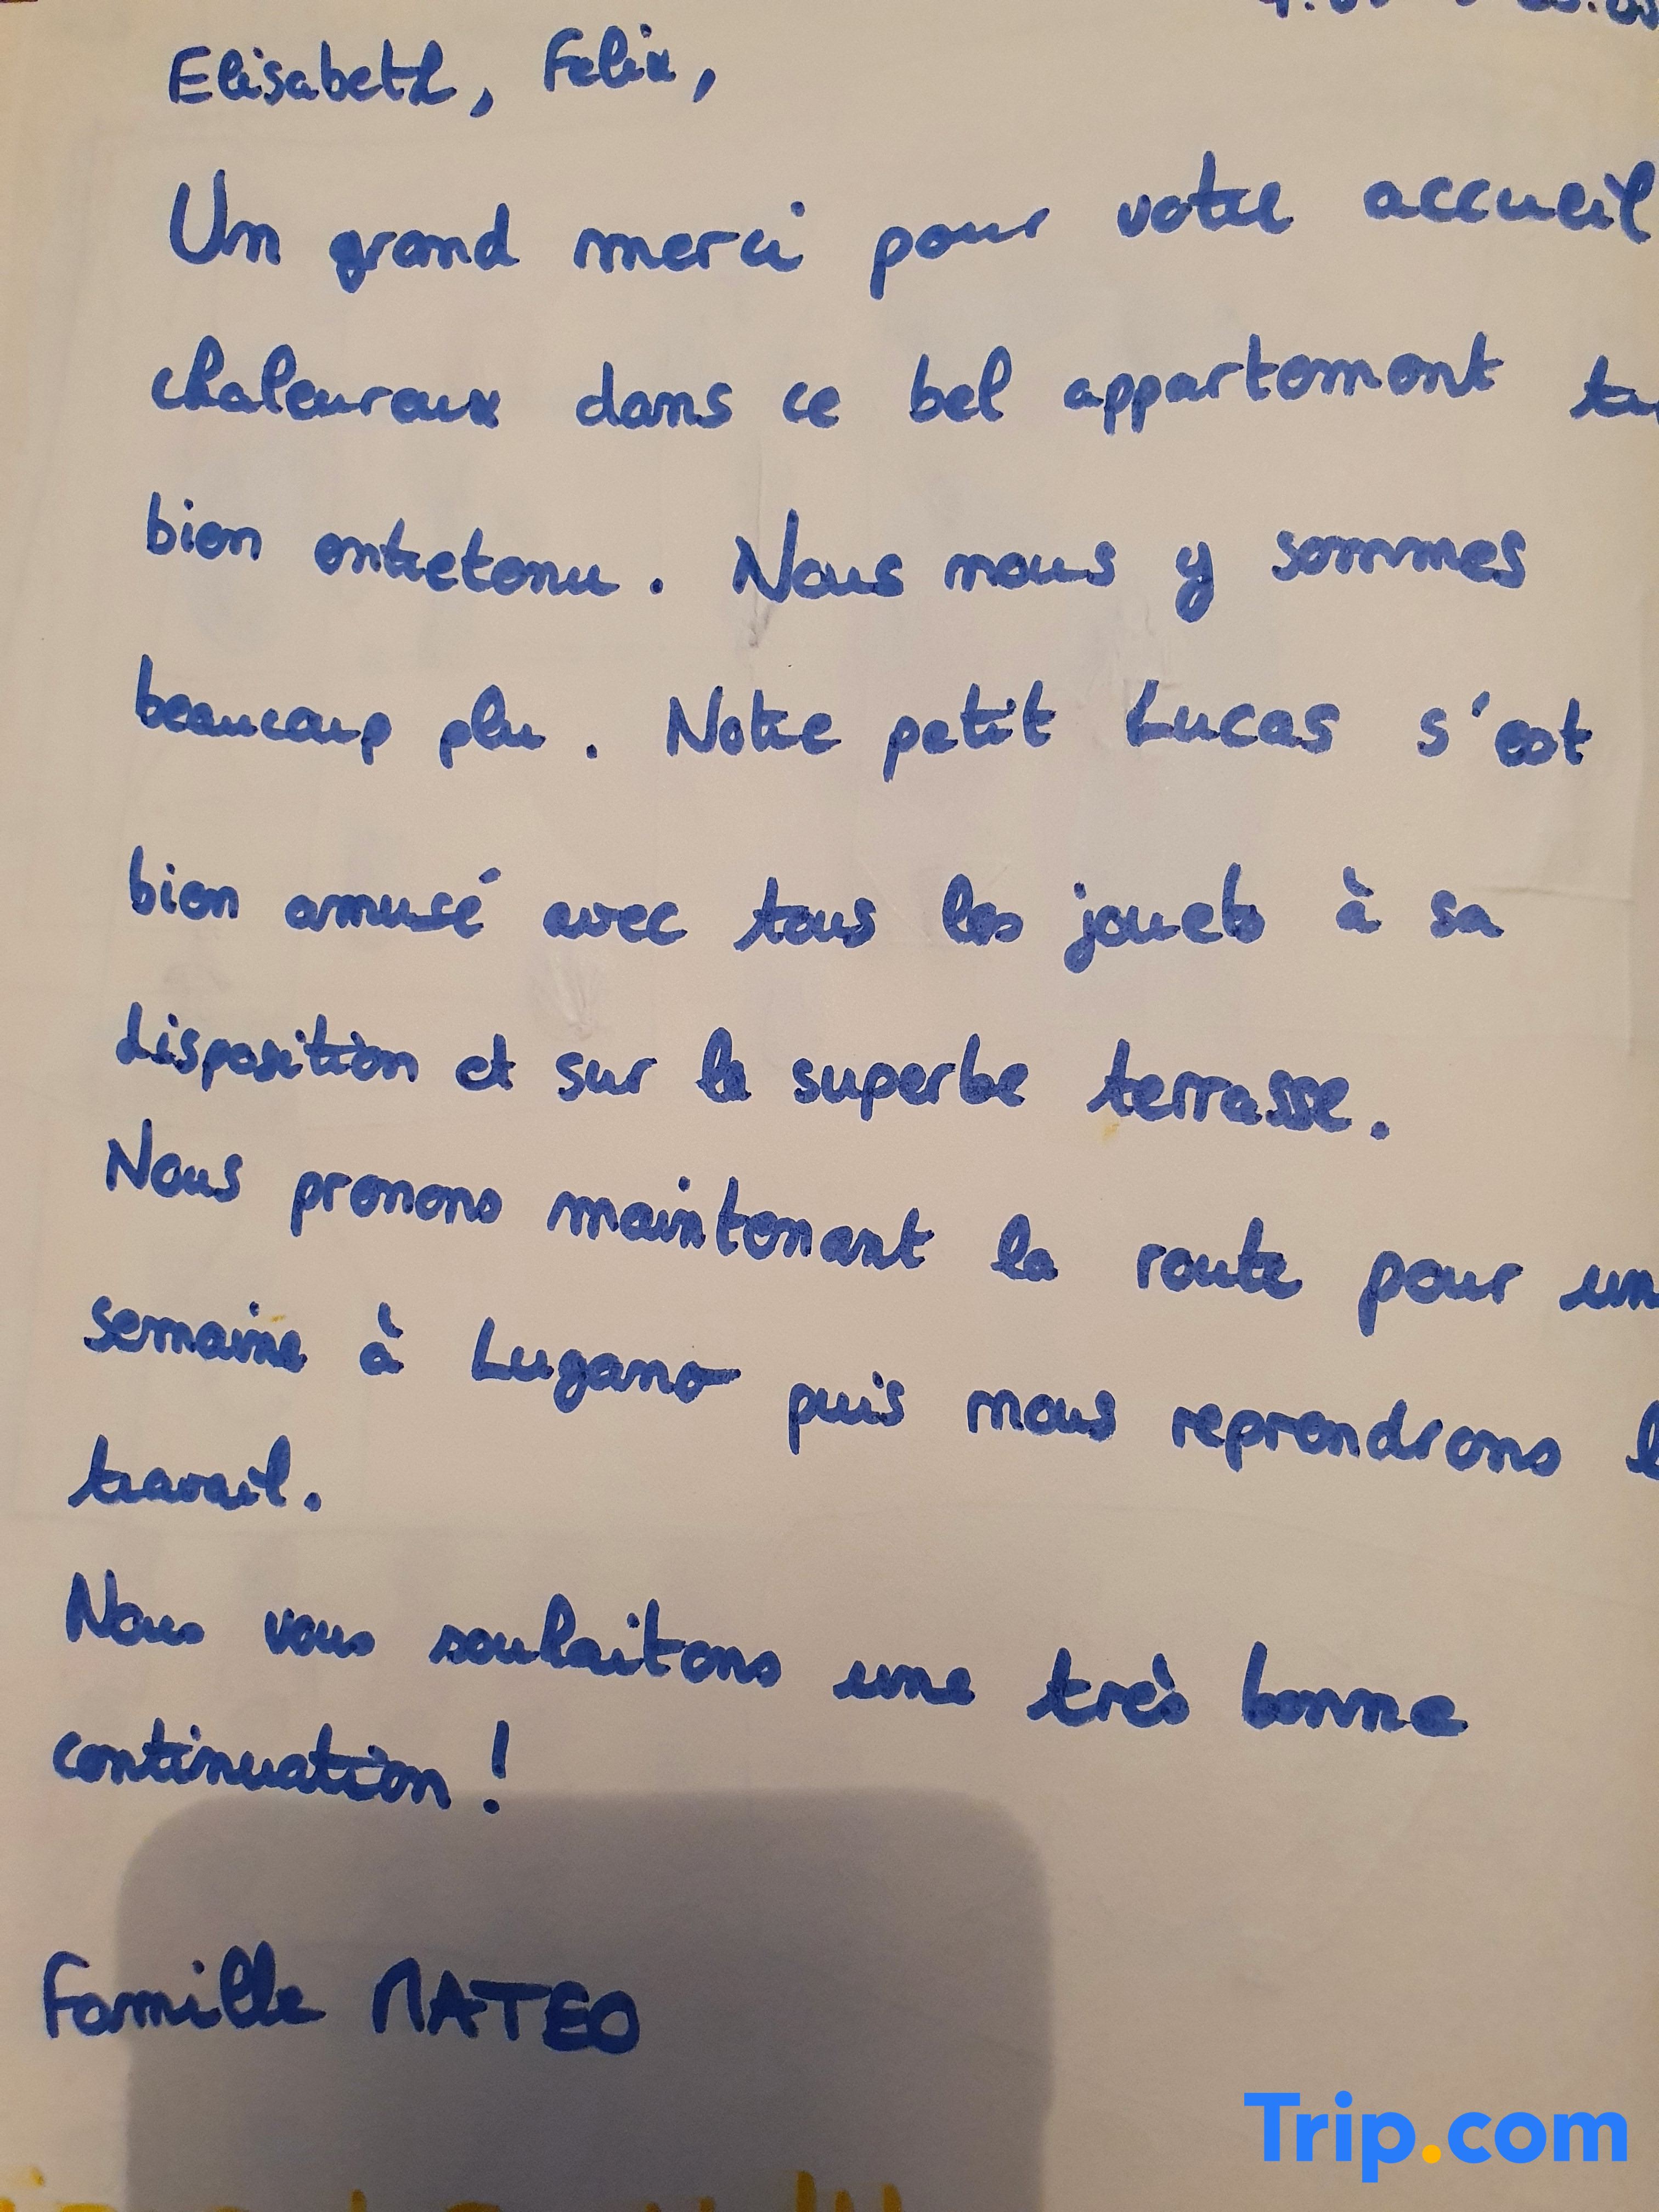 Elisabeth, Felix,
Un grand merci pour votre accueil
chaleureux dans ce bel appartement
bien entretenu. Nous nous y sommes
beaucoup plu. Notre petit Lucas s'est
bien amusé avec tous les jouets à sa
disposition et sur la superbe terrasse.
Nous prenons maintenant la route pour un
semaine à Lugano puis nous reprendrons l
travail.
Nous vous souhaitons une très bonne
continuation !
Famille MATEO
Trip.com